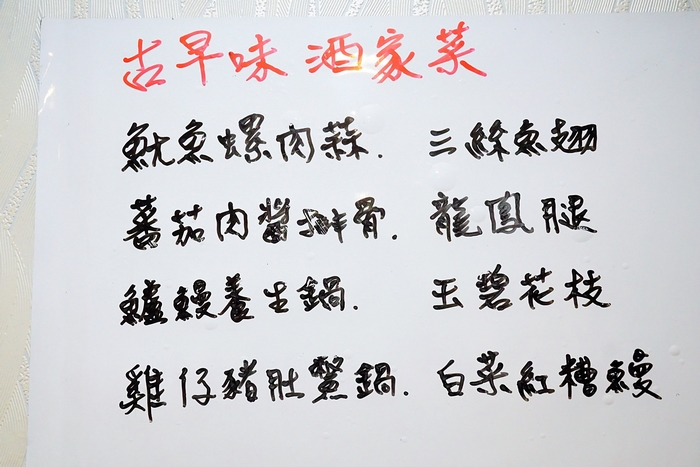 古早味 酒家菜
魷魚螺肉蒜. 三絲魚翅
蕃茄肉醬排骨. 龍鳳腿
鱸鰻養生鍋. 玉碧花枝
雞仔豬肚鱉鍋. 白菜紅糟鰻